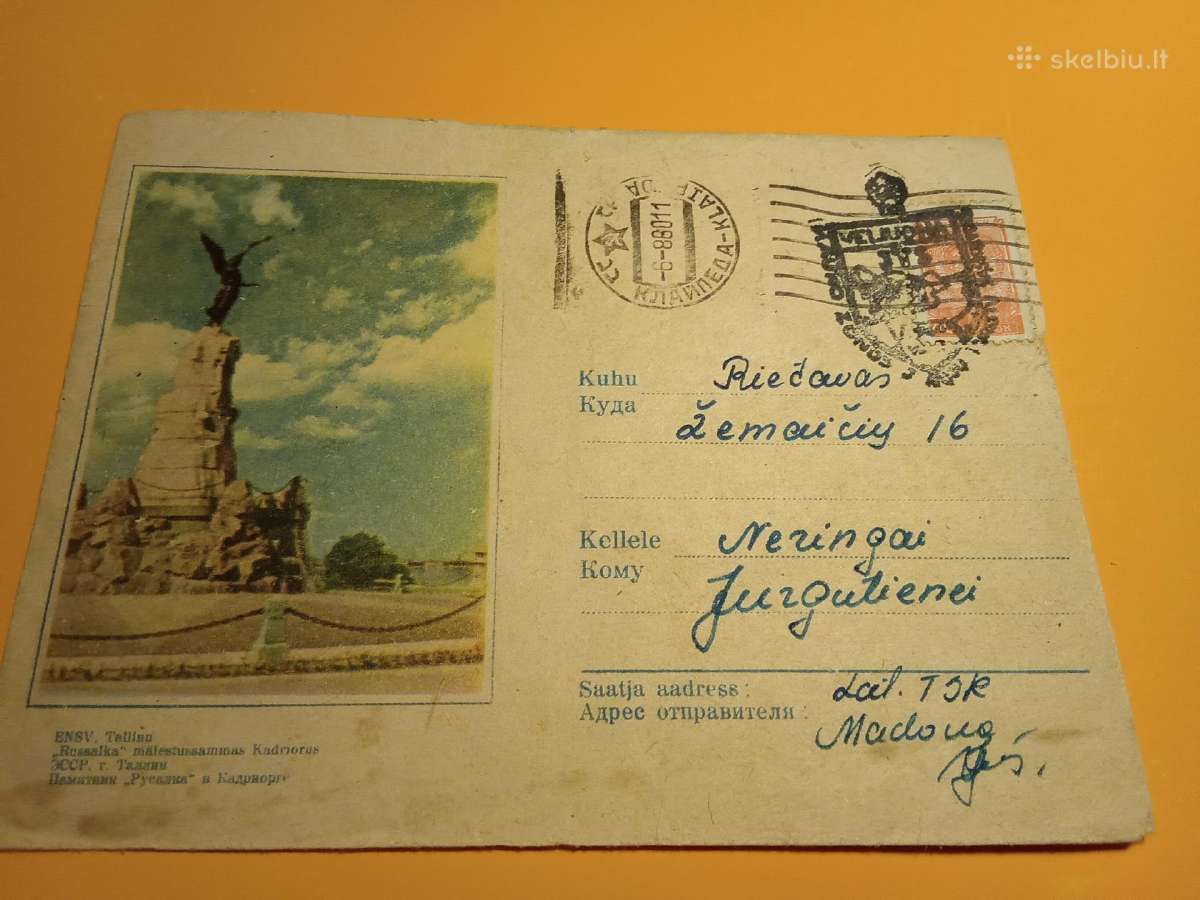 skelbiu.lt
СССР
КЛАЙПЕДА-KLAIPĖDA
-6-88011
VELIUONA
Kuhu Riečavas
Куда Žemaičių 16
Kellele Neringai
Кому Jurgutienei
Saatja aadress: Lat. TSR
Адрес отправителя: Madona
ENSV. Tallinn
„Russalka“ mälestussammas Kadriorus
ЭССР, г. Таллин
Памятник „Русалка“ в Кадриорге